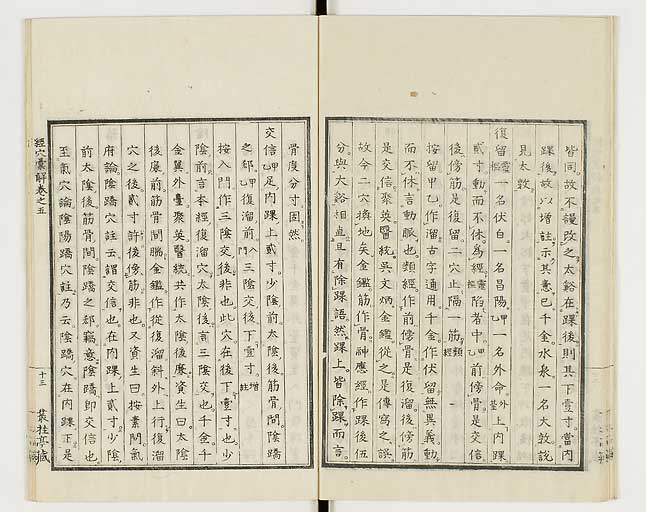 皆同故不謾改之太谿在踝後則其下壹寸當內
踝後故以增註示其意已千金水泉一名大敦説
見太敦
復留靈樞一名伏白一名昌陽甲乙一名外命外臺上內踝
貳寸動而不休為經靈樞陷者中甲乙前傍骨是交信
後傍筋是復留二穴止隔一筋類經
按留甲乙作溜古字通用千金作伏留無異義動
而不休言動脈也類經作前傍骨是復溜後傍筋
是交信聚英醫統吳文炳金鑑從之是傳寫之誤
故令二穴換地矣金鑑筋作骨神應經作踝後伍
分與大谿相直且有除踝語然踝上皆除踝而言
骨度分寸固然
交信甲乙足內踝上貳寸少陰前太陰後筋骨間陰蹻
之郄甲乙復溜前入門三陰交後下壹寸增註
按入門作三陰交後非也此穴在後下壹寸也少
陰前言本經復溜穴太陰後言三陰交也千金千
金翼外臺聚英醫統共作太陰後廉資生曰太陰
後廉前筋骨間腨金鑑作從復溜斜外上行復溜
穴之後貳寸許後傍筋非也又資生曰按素問氣
府論陰蹻穴註云謂交信也在內踝上貳寸少陰
前太陰後筋骨間陰蹻之郄竊意陰蹻即交信也
至氣穴論陰陽蹻穴註乃云陰蹻穴在內踝下是
經穴彙解卷之五
十三
叢桂亭藏